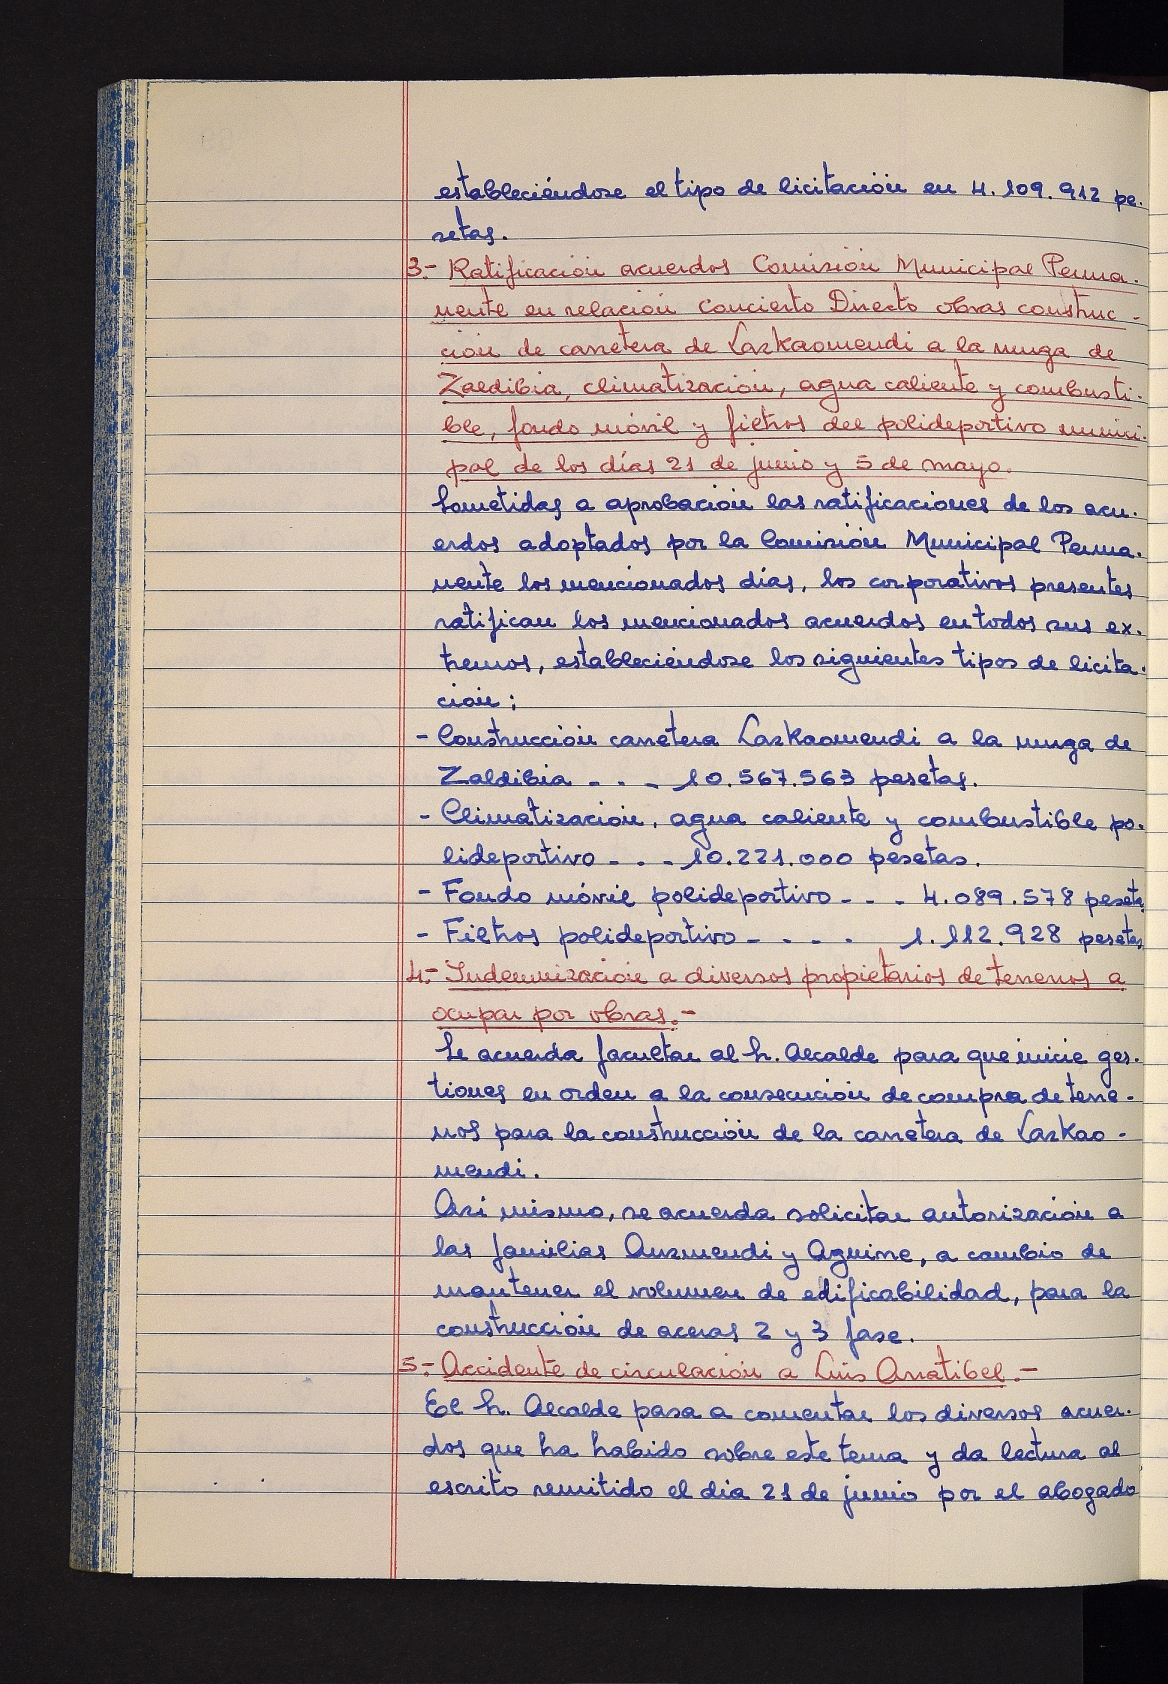 estableciéndose el tipo de licitación en 4.109.912 pe-
setas.
3.- Ratificación acuerdos Comisión Municipal Perma-
nente en relación Concierto Directo obras construc-
ción de carretera de Lazkaomendi a la muga de
Zaldibia, climatización, agua caliente y combusti-
ble, fondo móvil y filtros del polideportivo munici-
pal de los días 21 de junio y 5 de mayo.
Sometidas a aprobación las ratificaciones de los acu-
erdos adoptados por la Comisión Municipal Perma-
nente los mencionados días, los corporativos presentes
ratifican los mencionados acuerdos en todos sus ex-
tremos, estableciéndose los siguientes tipos de licita-
ción:
- Construcción carretera Lazkaomendi a la muga de
Zaldibia - - - 10.567.563 pesetas.
- Climatización, agua caliente y combustible po-
lideportivo - - - 10.221.000 pesetas.
- Fondo móvil polideportivo - - - 4.089.578 pesetas
- Filtros polideportivo - - - - 1.112.928 pesetas
4.- Indemnización a diversos propietarios de terrenos a
ocupar por obras.-
Se acuerda facultar al Sr. Alcalde para que inicie ges-
tiones en orden a la consecución de compra de terre-
nos para la construcción de la carretera de Lazkao-
mendi.
Asi mismo, se acuerda solicitar autorización a
las familias Auzmendi y Aguirre, a cambio de
mantener el volumen de edificabilidad, para la
construcción de aceras 2 y 3 fase.
5.- Accidente de circulación a Luis Arratibel.-
El Sr. Alcalde pasa a comentar los diversos acuer-
dos que ha habido sobre este tema y da lectura al
escrito remitido el dia 21 de junio por el abogado